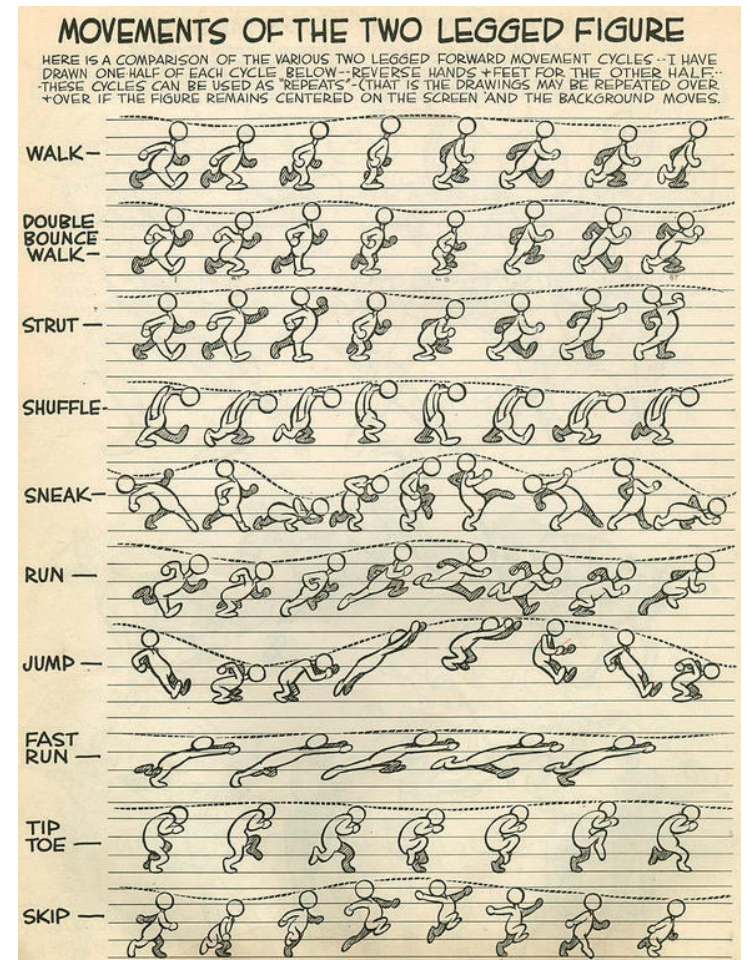 MOVEMENTS OF THE TWO LEGGED FIGURE
HERE IS A COMPARISON OF THE VARIOUS TWO LEGGED FORWARD MOVEMENT CYCLES--I HAVE
DRAWN ONE-HALF OF EACH CYCLE BELOW--REVERSE HANDS + FEET FOR THE OTHER HALF--
-THESE CYCLES CAN BE USED AS "REPEATS"-(THAT IS THE DRAWINGS MAY BE REPEATED OVER
+ OVER IF THE FIGURE REMAINS CENTERED ON THE SCREEN AND THE BACKGROUND MOVES.
WALK-
DOUBLE
BOUNCE
WALK-
STRUT-
SHUFFLE-
SNEAK-
RUN-
JUMP-
FAST
RUN-
TIP
TOE-
SKIP-